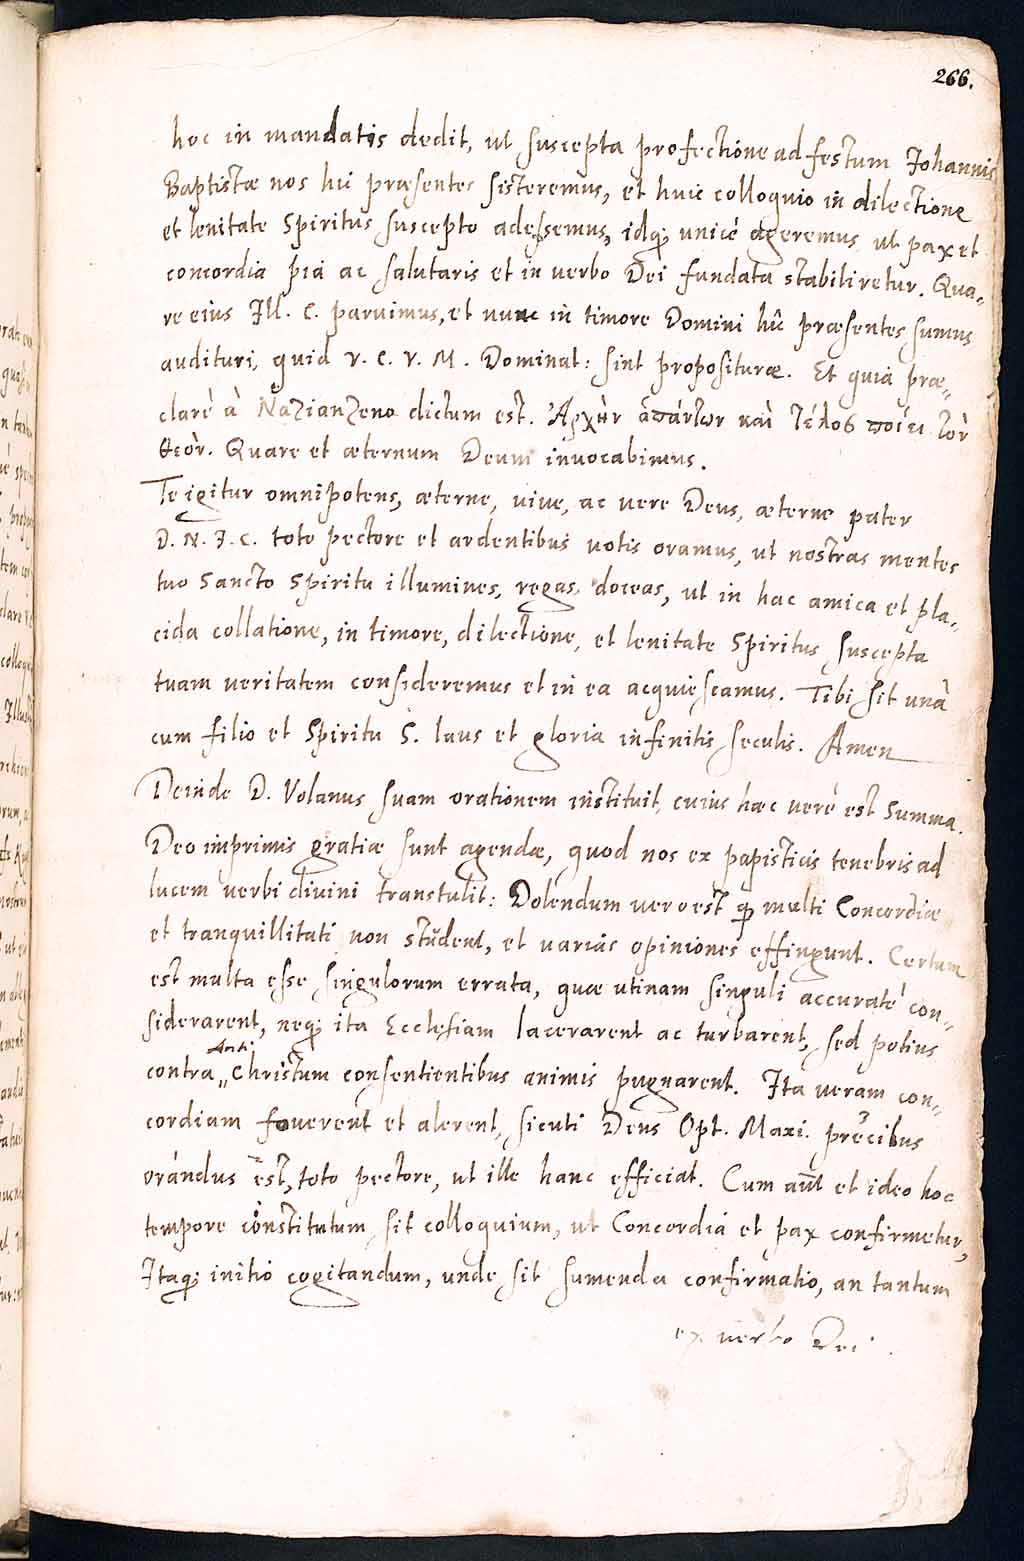 266.
hoc in mandatis dedit, ut suscepta profectione ad festum Johannis
Baptistæ nos hûc præsentes sisteremus, et huic colloquio in dilectione
et lenitate Spiritus suscepto adessemus, idq; unicè ageremus ut pax et
concordia pia ac salutaris et in verbo Dei fundata stabiliretur. Qua„
re eius Ill. C. paruimus, et nunc in timore Domini hûc præsentes sumus
audituri, quid V. C. V. M. Dominat: sint proposituræ. Et quia præ„
clarè à Nazianzeno dictum est. Ἀρχὴν ἁπάντων καὶ τέλος ποίει τὸν
θεόν. Quare et æternum Deum invocabimus.
Te igitur omnipotens, æterne, vive, ac vere Deus, æterne pater
D. N. J. C. toto pectore et ardentibus votis oramus, ut nostras mentes
tuo Sancto Spiritu illumines, regas, doceas, ut in hac amica et pla„
cida collatione, in timore, dilectione, et lenitate Spiritus suscepta
tuam veritatem consideremus et in ea acquiescamus. Tibi sit unà
cum filio et Spiritu S. laus et gloria infinitis seculis. Amen
Deinde D. Volanus suam orationem instituit, cuius hæc verè est Summa.
Deo imprimis gratiæ sunt agendæ, quod nos ex papisticis tenebris ad
lucem verbi divini transtulit: Dolendum vero est qp multi Concordiæ
et tranquillitati non student, et varias opiniones effingunt. Certum
est multa esse singulorum errata, quæ utinam singuli accuratè con„
siderarent, neq; ita Ecclesiam lacerarent ac turbarent, sed potius
Anti
contra „ Christum consentientibus animis pugnarent. Ita veram con„
cordiam foverent et alerent, sicuti Deus Opt. Maxi. precibus
orandus est, toto pectore, ut ille hanc efficiat. Cum aut̄ et ideo hoc
tempore constitutum sit colloquium, ut Concordia et pax confirmetur,
Itaq; initio cogitandum, unde sit sumenda confirmatio, an tantum
ex verbo Dei.